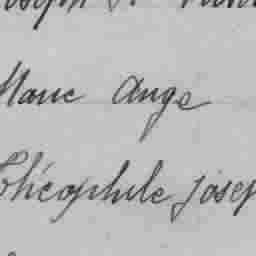 Marie Ange
Théophile Josep